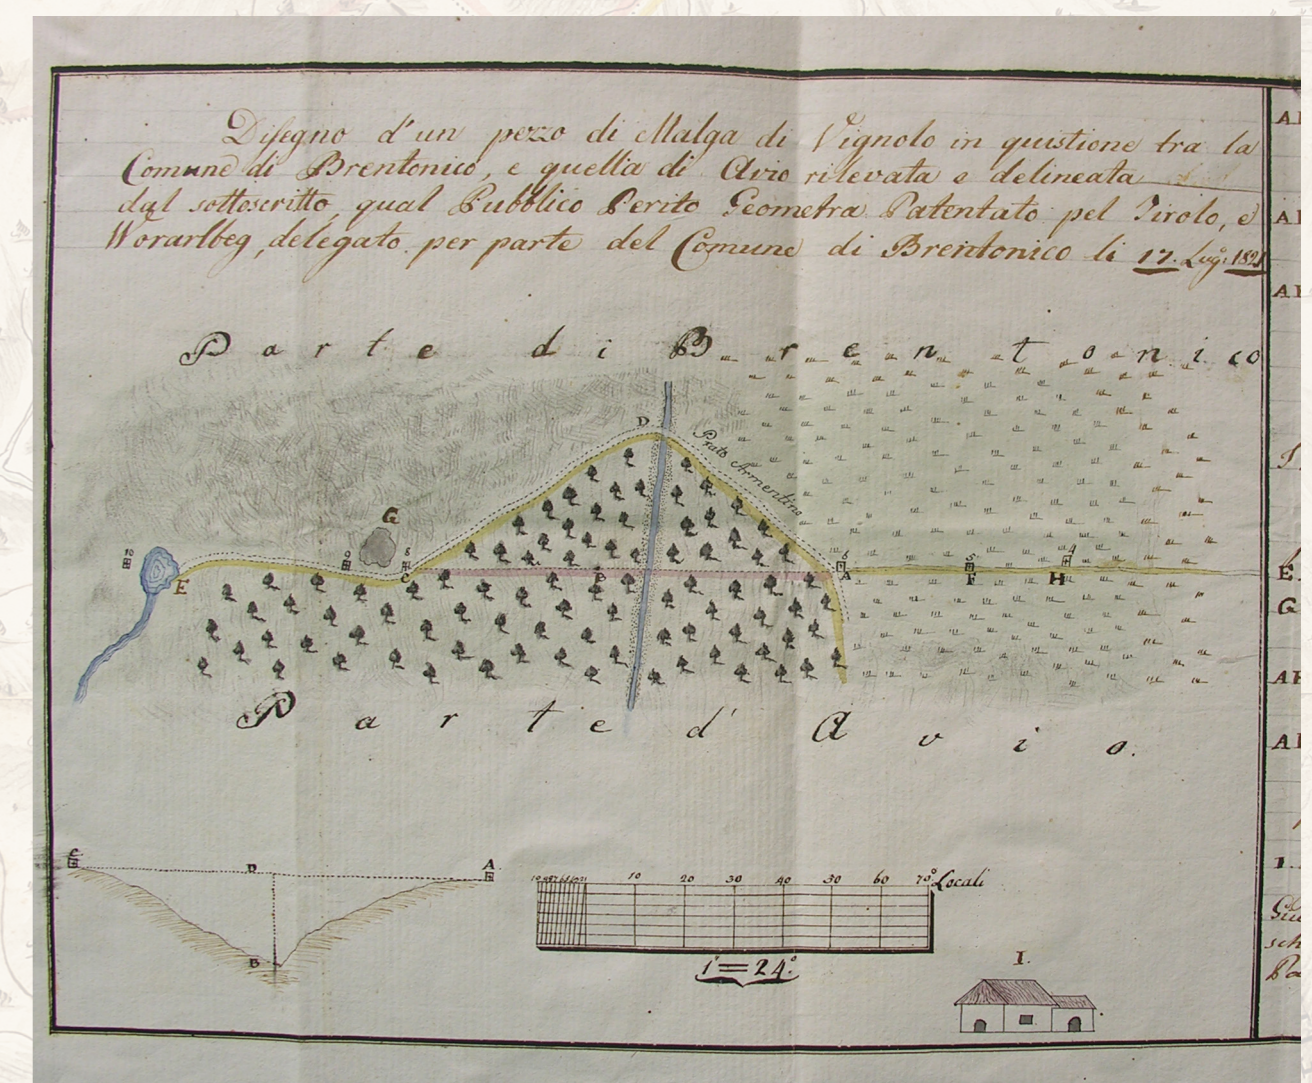 Disegno d'un pezzo di Malga di Vignolo in quistione tra la
Comune di Brentonico, e quella di Avio rilevata e delineata
dal sottoscritto, qual Pubblico Perito Geometra Patentato pel Tirolo, e
Worarlbeg, delegato per parte del Comune di Brentonico li 17. Lug:
Parte di Brentonico
D
Prato Armentino
G
10
9
8
6
5
4
E
C
A
F
H
Parte d'Avio.
C
D
A
B
10 20 30 40 50 60 70° Locali
1" = 24°
I.